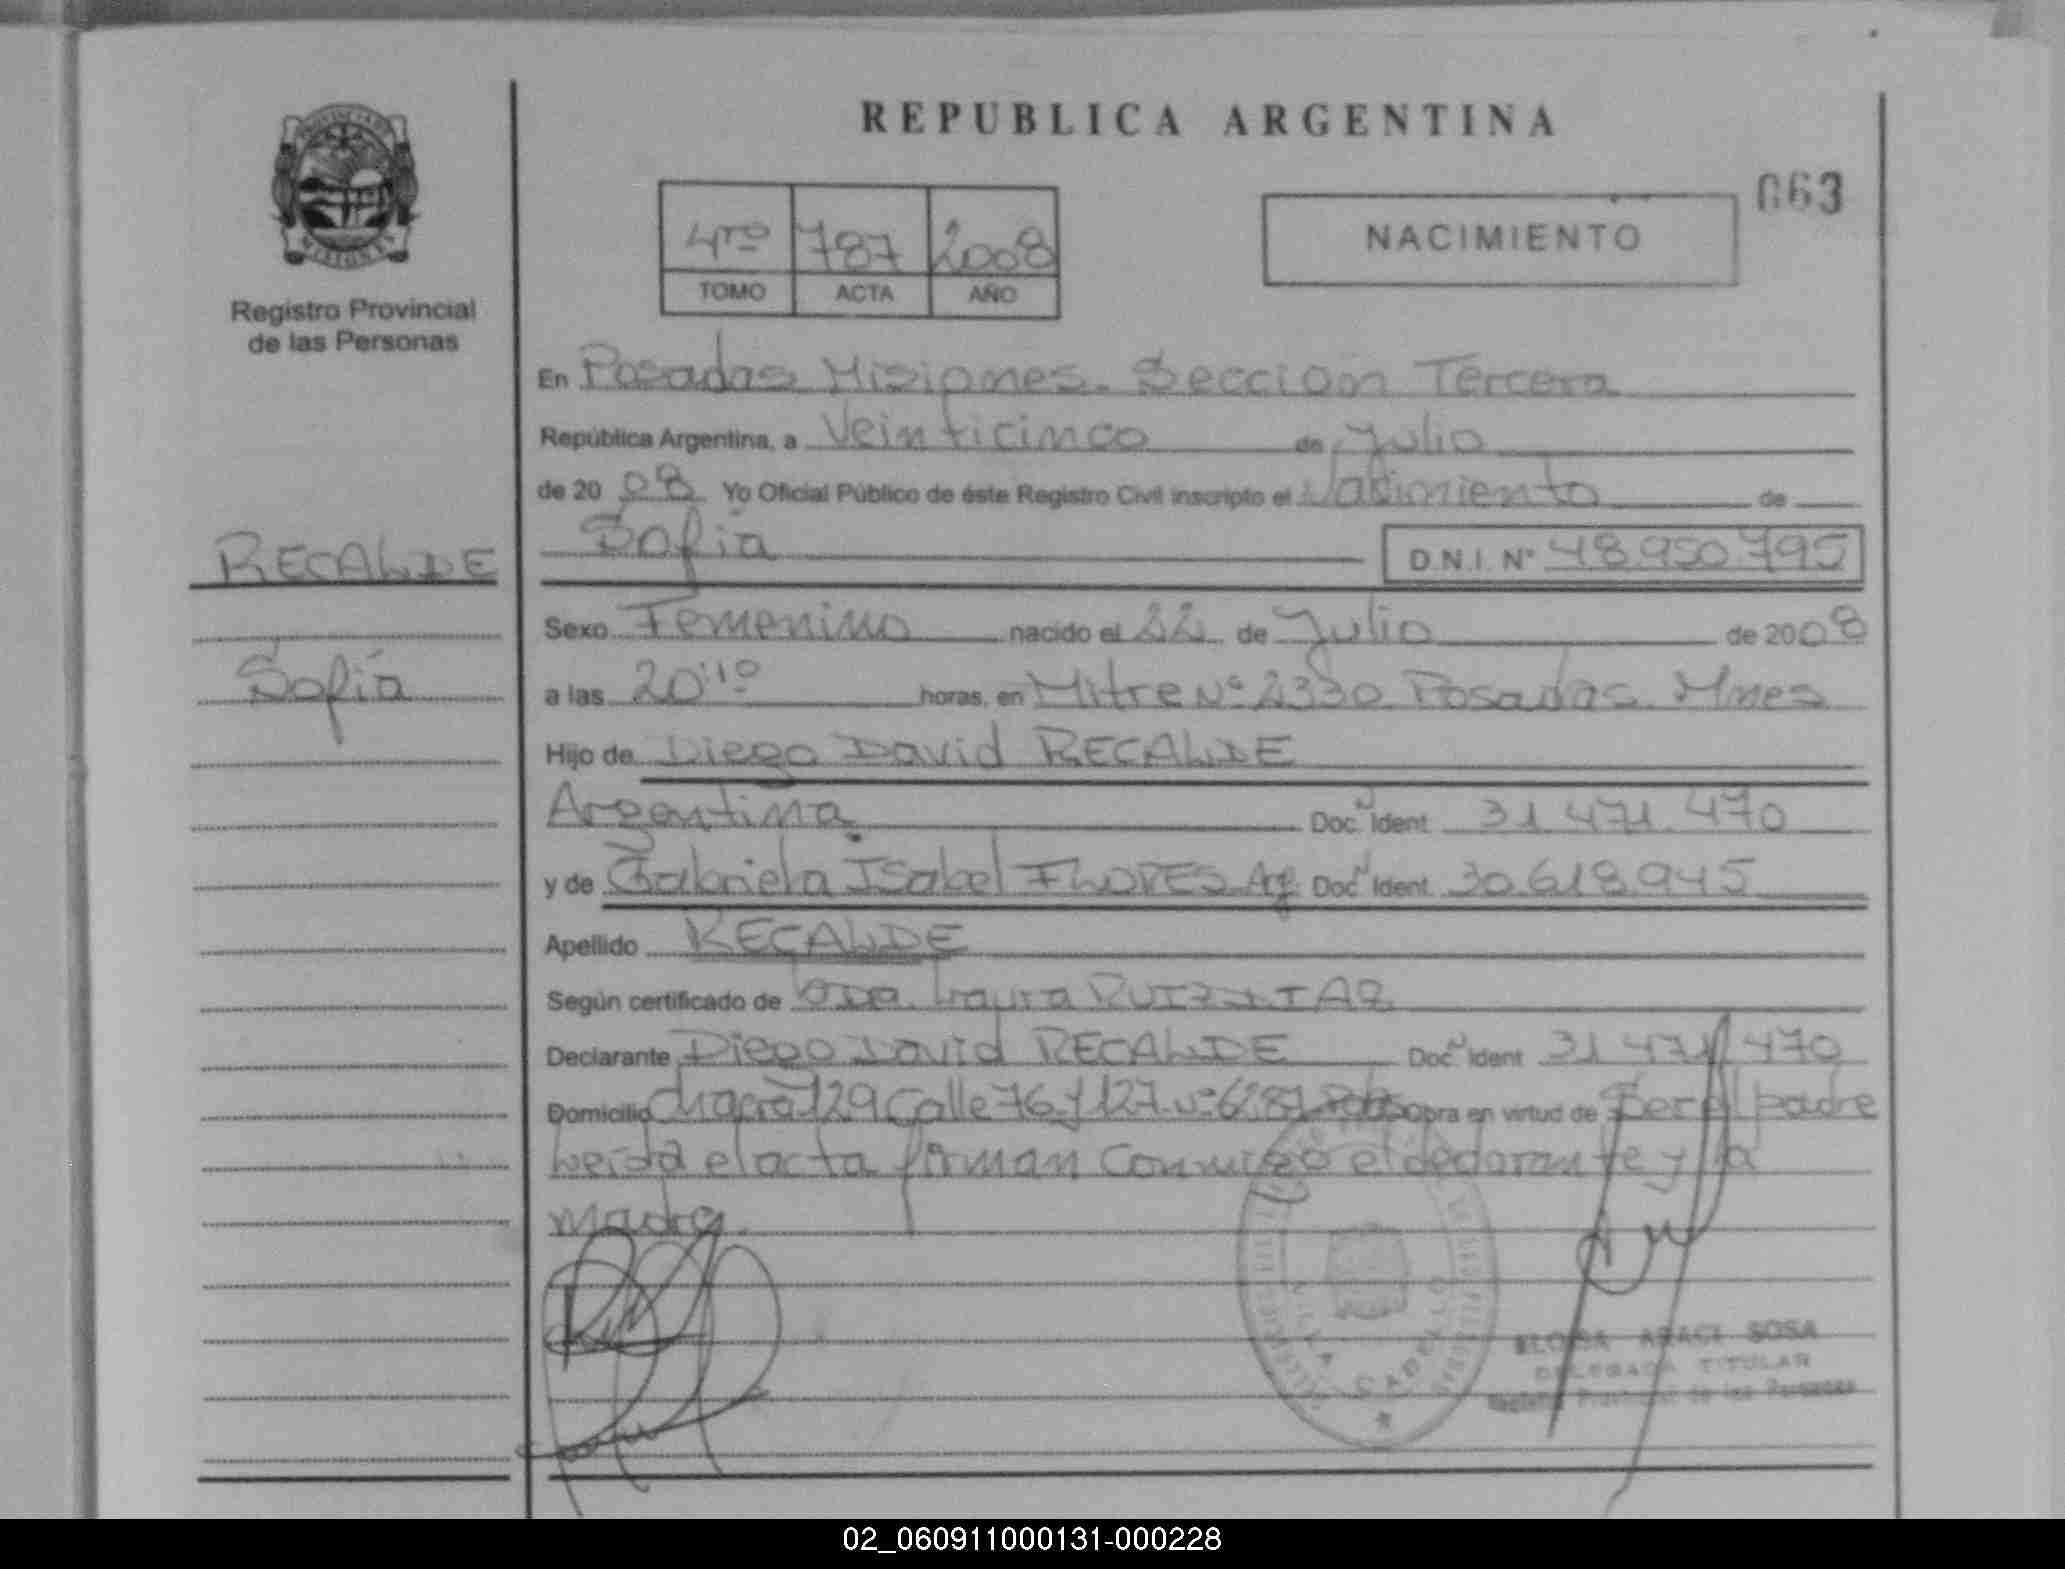 REPUBLICA ARGENTINA
063
NACIMIENTO
4to 787 2008
TOMO ACTA AÑO
PROVINCIA DE
MISIONES
Registro Provincial
de las Personas
En Posadas Misiones. Sección Tercera
República Argentina, a Veinticinco de Julio
de 2008 Yo Oficial Público de éste Registro Civil inscripto el Nacimiento de
Sofía D.N.I. N° 48.950.795
RECALDE
Sexo Femenino nacido el 22 de Julio de 2008
Sofía
a las 20:10 horas, en Mitre N° 2330 Posadas Mnes
Hijo de Diego David RECALDE
Argentina Doc. Ident 31 471. 470
y de Gabriela Isabel FLORES Arg Doc. Ident. 30.618.945
Apellido RECALDE
Según certificado de Dra. Laura
Declarante Diego David RECALDE Doc. Ident 31 471 470
Domicilio Chacra 129 Calle 76 y 127 N° 6287 Pdas Obra en virtud de Ser el padre
Leída el acta firman conmigo el declarante y la
madre.
ARACI SOSA
DELEGADA TITULAR
Registro Provincial de las Personas
02_060911000131-000228